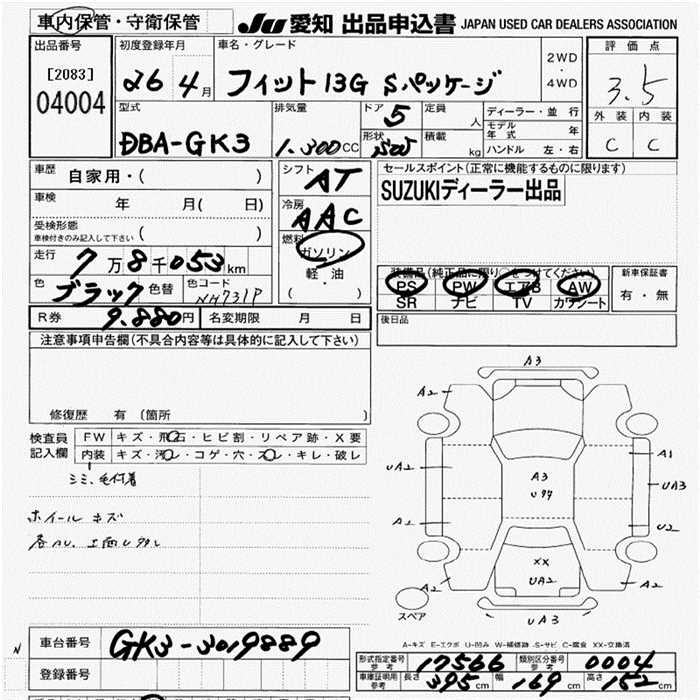 車内保管・守衛保管
JU 愛知 出品申込書 JAPAN USED CAR DEALERS ASSOCIATION
出品番号
[2083]
04004
初度登録年月
26 4月
車名・グレード
フィット 13G Sパッケージ
2WD
・
4WD
評価点
3.5
外装 内装
C C
型式
DBA-GK3
排気量
1.300CC
ドア
5
形状
定員
人
積載
kg
ディーラー・並行
モデル年式 年
ハンドル 左・右
車歴
自家用・( )
車検
年 月( 日)
受検形態
車検付きのみ記入して下さい ( )
走行
7万8千053km
色
ブラック
色替
色コード
NH731P
シフト
AT
冷房
AAC
燃料
ガソリン
・
軽油
( )
セールスポイント(正常に機能するものに限ります)
SUZUKIディーラー出品
装備品(純正品に限り○をつけてください)
PS PW エアB AW
SR ナビ TV カワシート
新車保証書
有・無
R券
9.880円
名変期限 月 日
後日品
注意事項申告欄(不具合内容等は具体的に記入して下さい)
修復歴 有(箇所 )
検査員
記入欄
FW キズ・飛石・ヒビ割・リペア跡・X要
内装 キズ・汚レ・コゲ・穴・スレ・キレ・破レ
シミ、毛付着
ホイール キズ
A3
A2
A1
UA2
A3
U97
UA3
A2
U2
XX
UA2
A2
A2
UA3
スペア
A-キズ E-エクボ U-凹み W-補修跡 S-サビ C-腐食 XX-交換済
N
車台番号
GK3-3019889
登録番号
形式指定番号 参考
17566
類別区分番号 参考
0004
車庫証明用 参考
長さ 395cm 幅 169cm 高さ 152cm